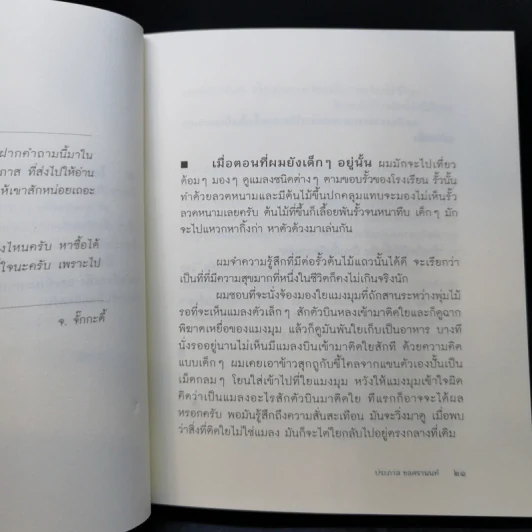 ฝากคำถามนี้มาใน
ภาส ที่ส่งไปให้อ่าน
ให้เขาสักหน่อยเถอะ
งไหนครับ หาซื้อได้
ใจนะครับ เพราะไป
จ. จั๊กกะดี้
■ เมื่อตอนที่ผมยังเด็กๆ อยู่นั้น ผมมักจะไปเที่ยว
ด้อมๆ มองๆ ดูแมลงชนิดต่างๆ ตามขอบรั้วของโรงเรียน รั้วนั้น
ทำด้วยลวดหนามและมีต้นไม้ขึ้นปกคลุมแทบจะมองไม่เห็นรั้ว
ลวดหนามเลยครับ ต้นไม้ที่ขึ้นก็เลื้อยพันรั้วจนหนาทึบ เด็กๆ มัก
จะไปแหวกหากิ้งก่า หาตัวด้วงมาเล่นกัน
ผมจำความรู้สึกที่มีต่อรั้วต้นไม้แถวนั้นได้ดี จะเรียกว่า
เป็นที่ที่มีความสุขมากที่หนึ่งในชีวิตก็คงไม่เกินจริงนัก
ผมชอบที่จะนั่งจ้องมองใยแมงมุมที่ถักสานระหว่างพุ่มไม้
รอที่จะเห็นแมลงตัวเล็กๆ สักตัวบินหลงเข้ามาติดใยและก็ดูฉาก
พิฆาตเหยื่อของแมงมุม แล้วก็ดูมันพันใยเก็บเป็นอาหาร บางที
นั่งรออยู่นานไม่เห็นมีแมลงบินเข้ามาติดใยสักที ด้วยความคิด
แบบเด็กๆ ผมเคยเอาข้าวสุกถูกับขี้ไคลจากแขนตัวเองปั้นเป็น
เม็ดกลมๆ โยนใส่เข้าไปที่ใยแมงมุม หวังให้แมงมุมเข้าใจผิด
คิดว่าเป็นแมลงอะไรสักตัวบินมาติดใย ทีแรกก็อาจจะได้ผล
หรอกครับ พอมันรู้สึกถึงความสั่นสะเทือน มันจะวิ่งมาดู เมื่อพบ
ว่าสิ่งที่ติดใยไม่ใช่แมลง มันก็จะไต่ใยกลับไปอยู่ตรงกลางที่เดิม
ประภาส ชลศรานนท์ ๒๑